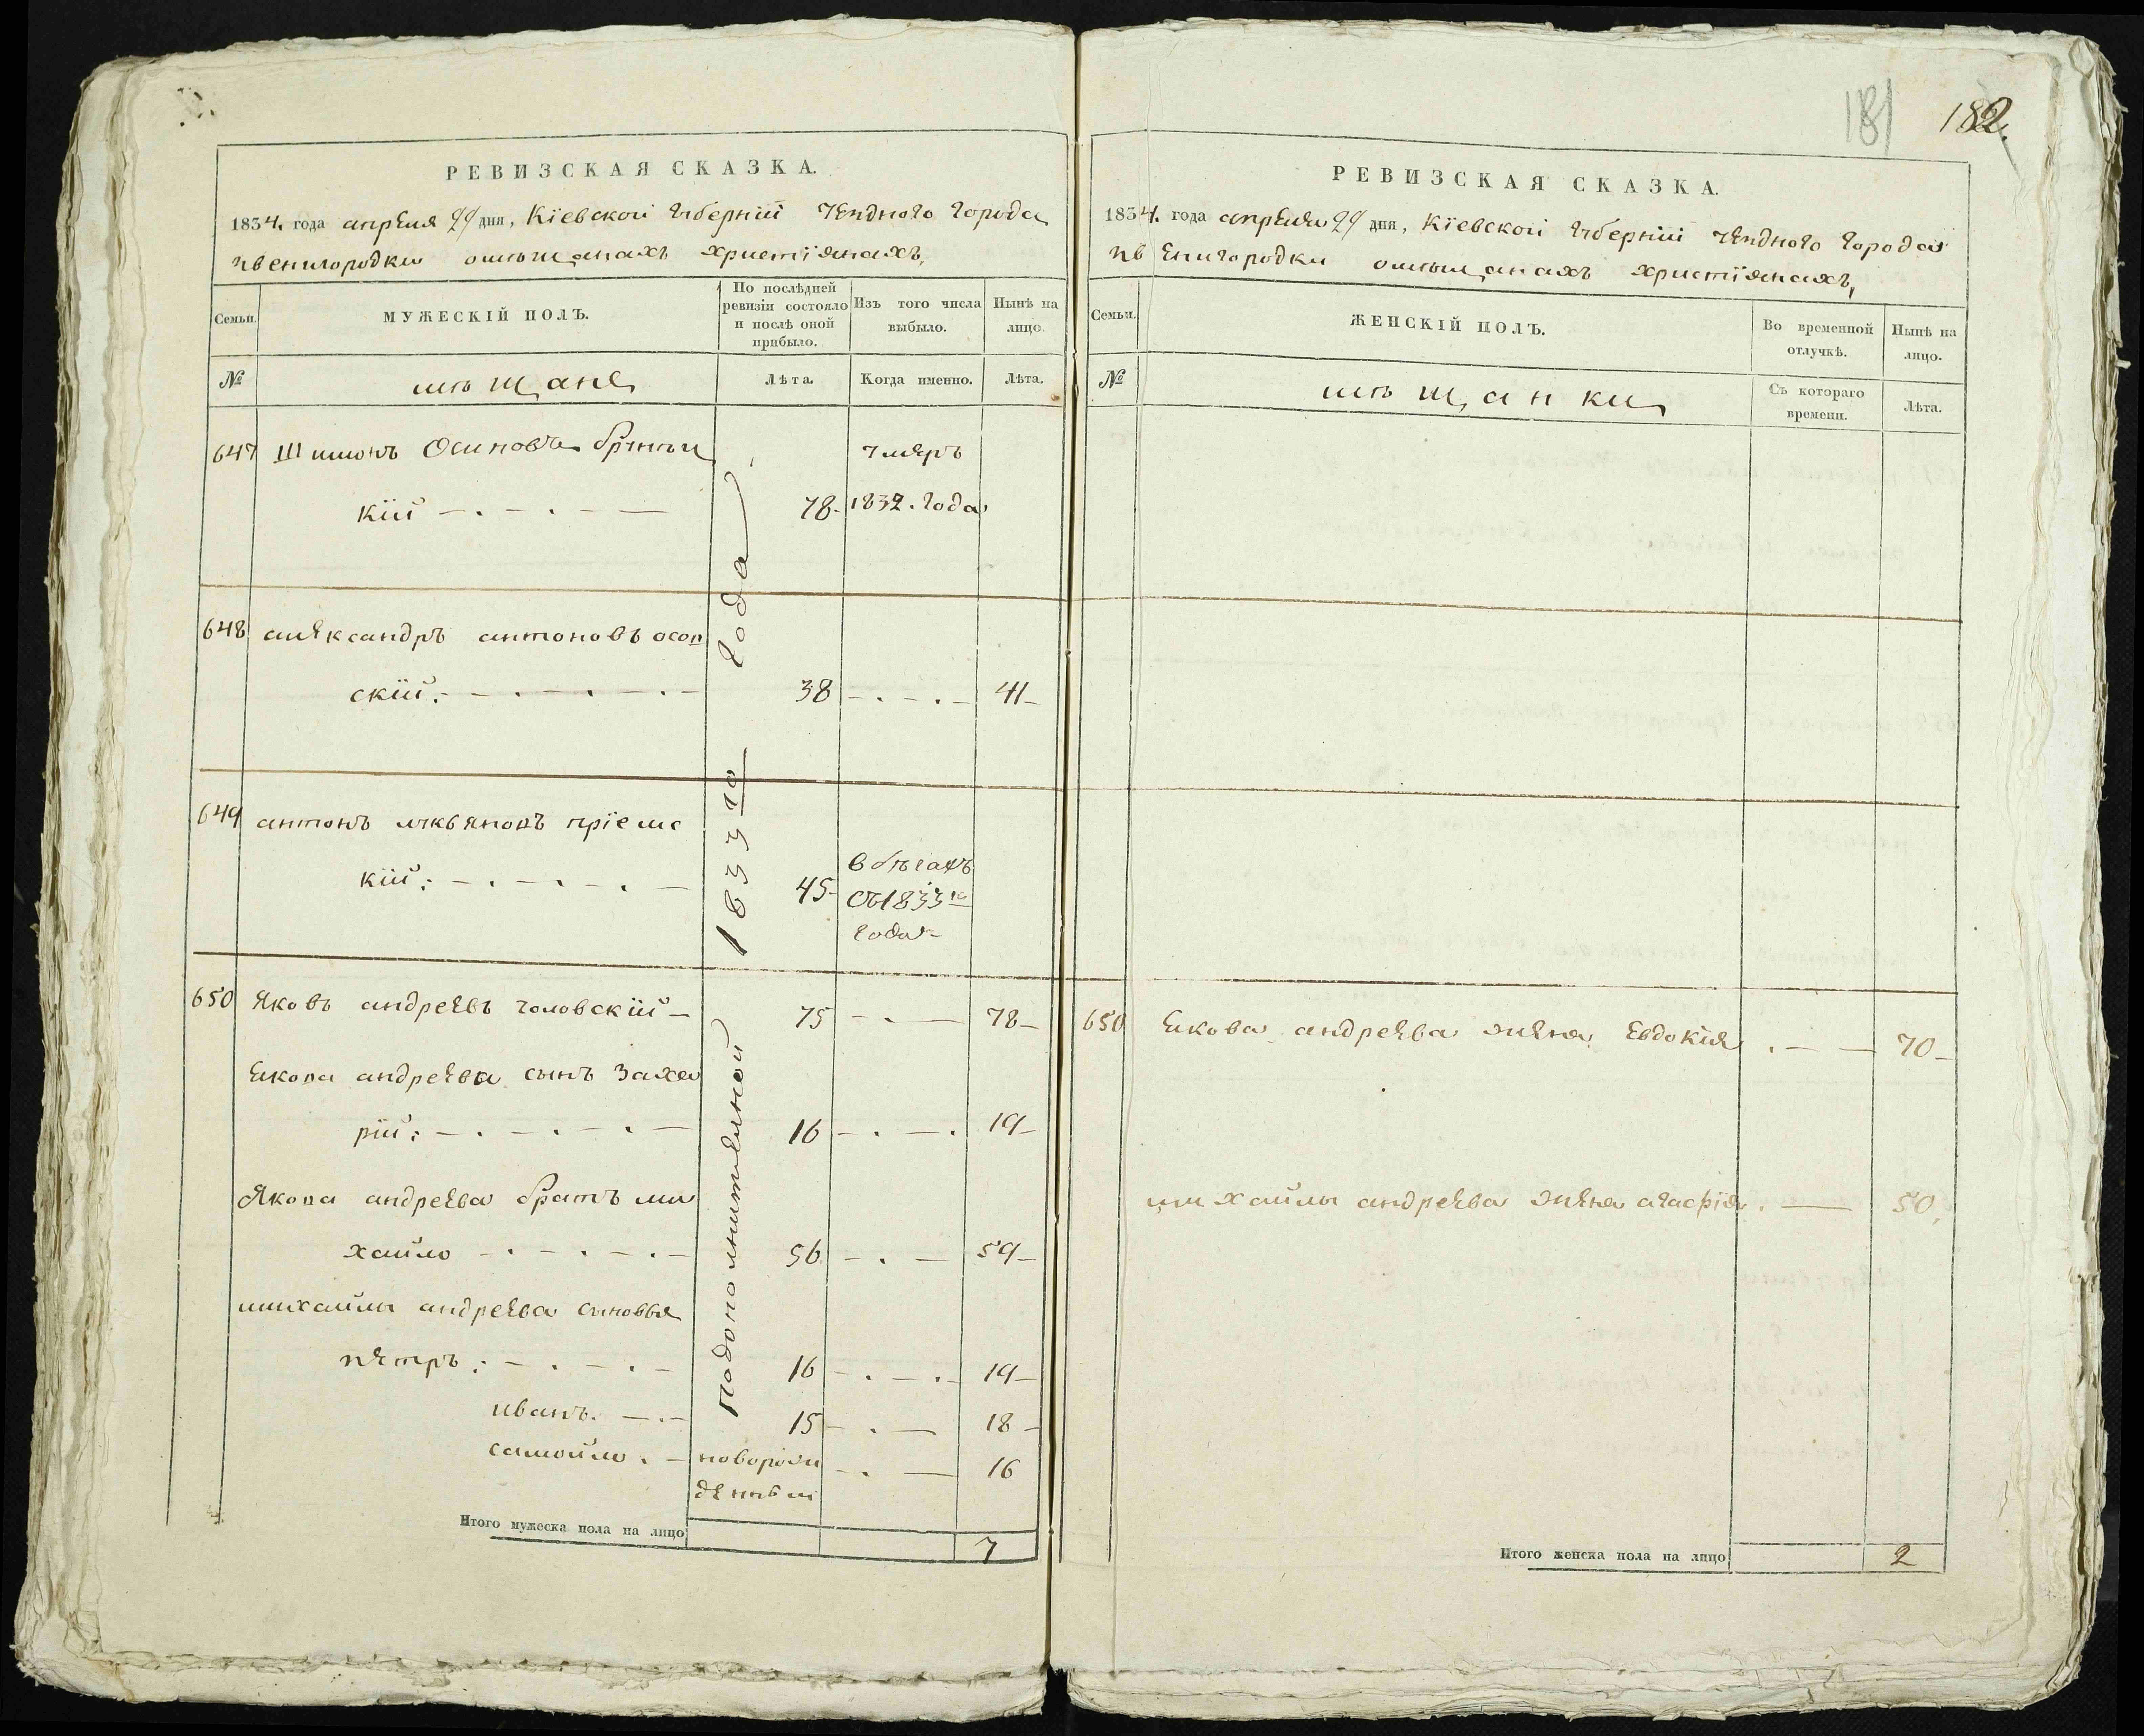 181 182.
РЕВИЗСКАЯ СКАЗКА.
1834. года апреля 29 дня, Кіевской Губерніи Уезднаго Города
Звенигородки омѣщанахъ христіянахъ,
Семьи. МУЖЕСКІЙ ПОЛЪ. По послѣдней ревизіи состояло и послѣ оной прибыло. Изъ того числа выбыло. Нынѣ на лицо.
№ мѣщане Лѣта. Когда именно. Лѣта.
647 Шимонъ Осиповъ
кій 78 умеръ 1832. Года
648 александръ антоновъ
скій: 38 41
649 антонъ
кій: 45 в бѣгахъ Съ 1833го Года
650 Яковъ андреевъ Чоловскій 75 78
Якова андреева сынъ Заха
рій: 16 19
Якова андреева братъ ми
хайло 56 59
михайлы андреева сыновья
петръ: 16 19
иванъ. 15 18
самойло. новорож 16
денный
Итого мужеска пола на лицо 7
подополнительной 1833го Года
РЕВИЗСКАЯ СКАЗКА.
1834. года апреля 29 дня, Кіевской Губерніи Уезднаго Города
Звенигородки омѣщанахъ христіянахъ,
Семьи. ЖЕНСКІЙ ПОЛЪ. Во временной отлучкѣ. Нынѣ на лицо.
№ мѣщанки Съ котораго времени. Лѣта.
650 Якова андреева жена Евдокія 70
михайлы андреева жена агафія 50
Итого женска пола на лицо 2